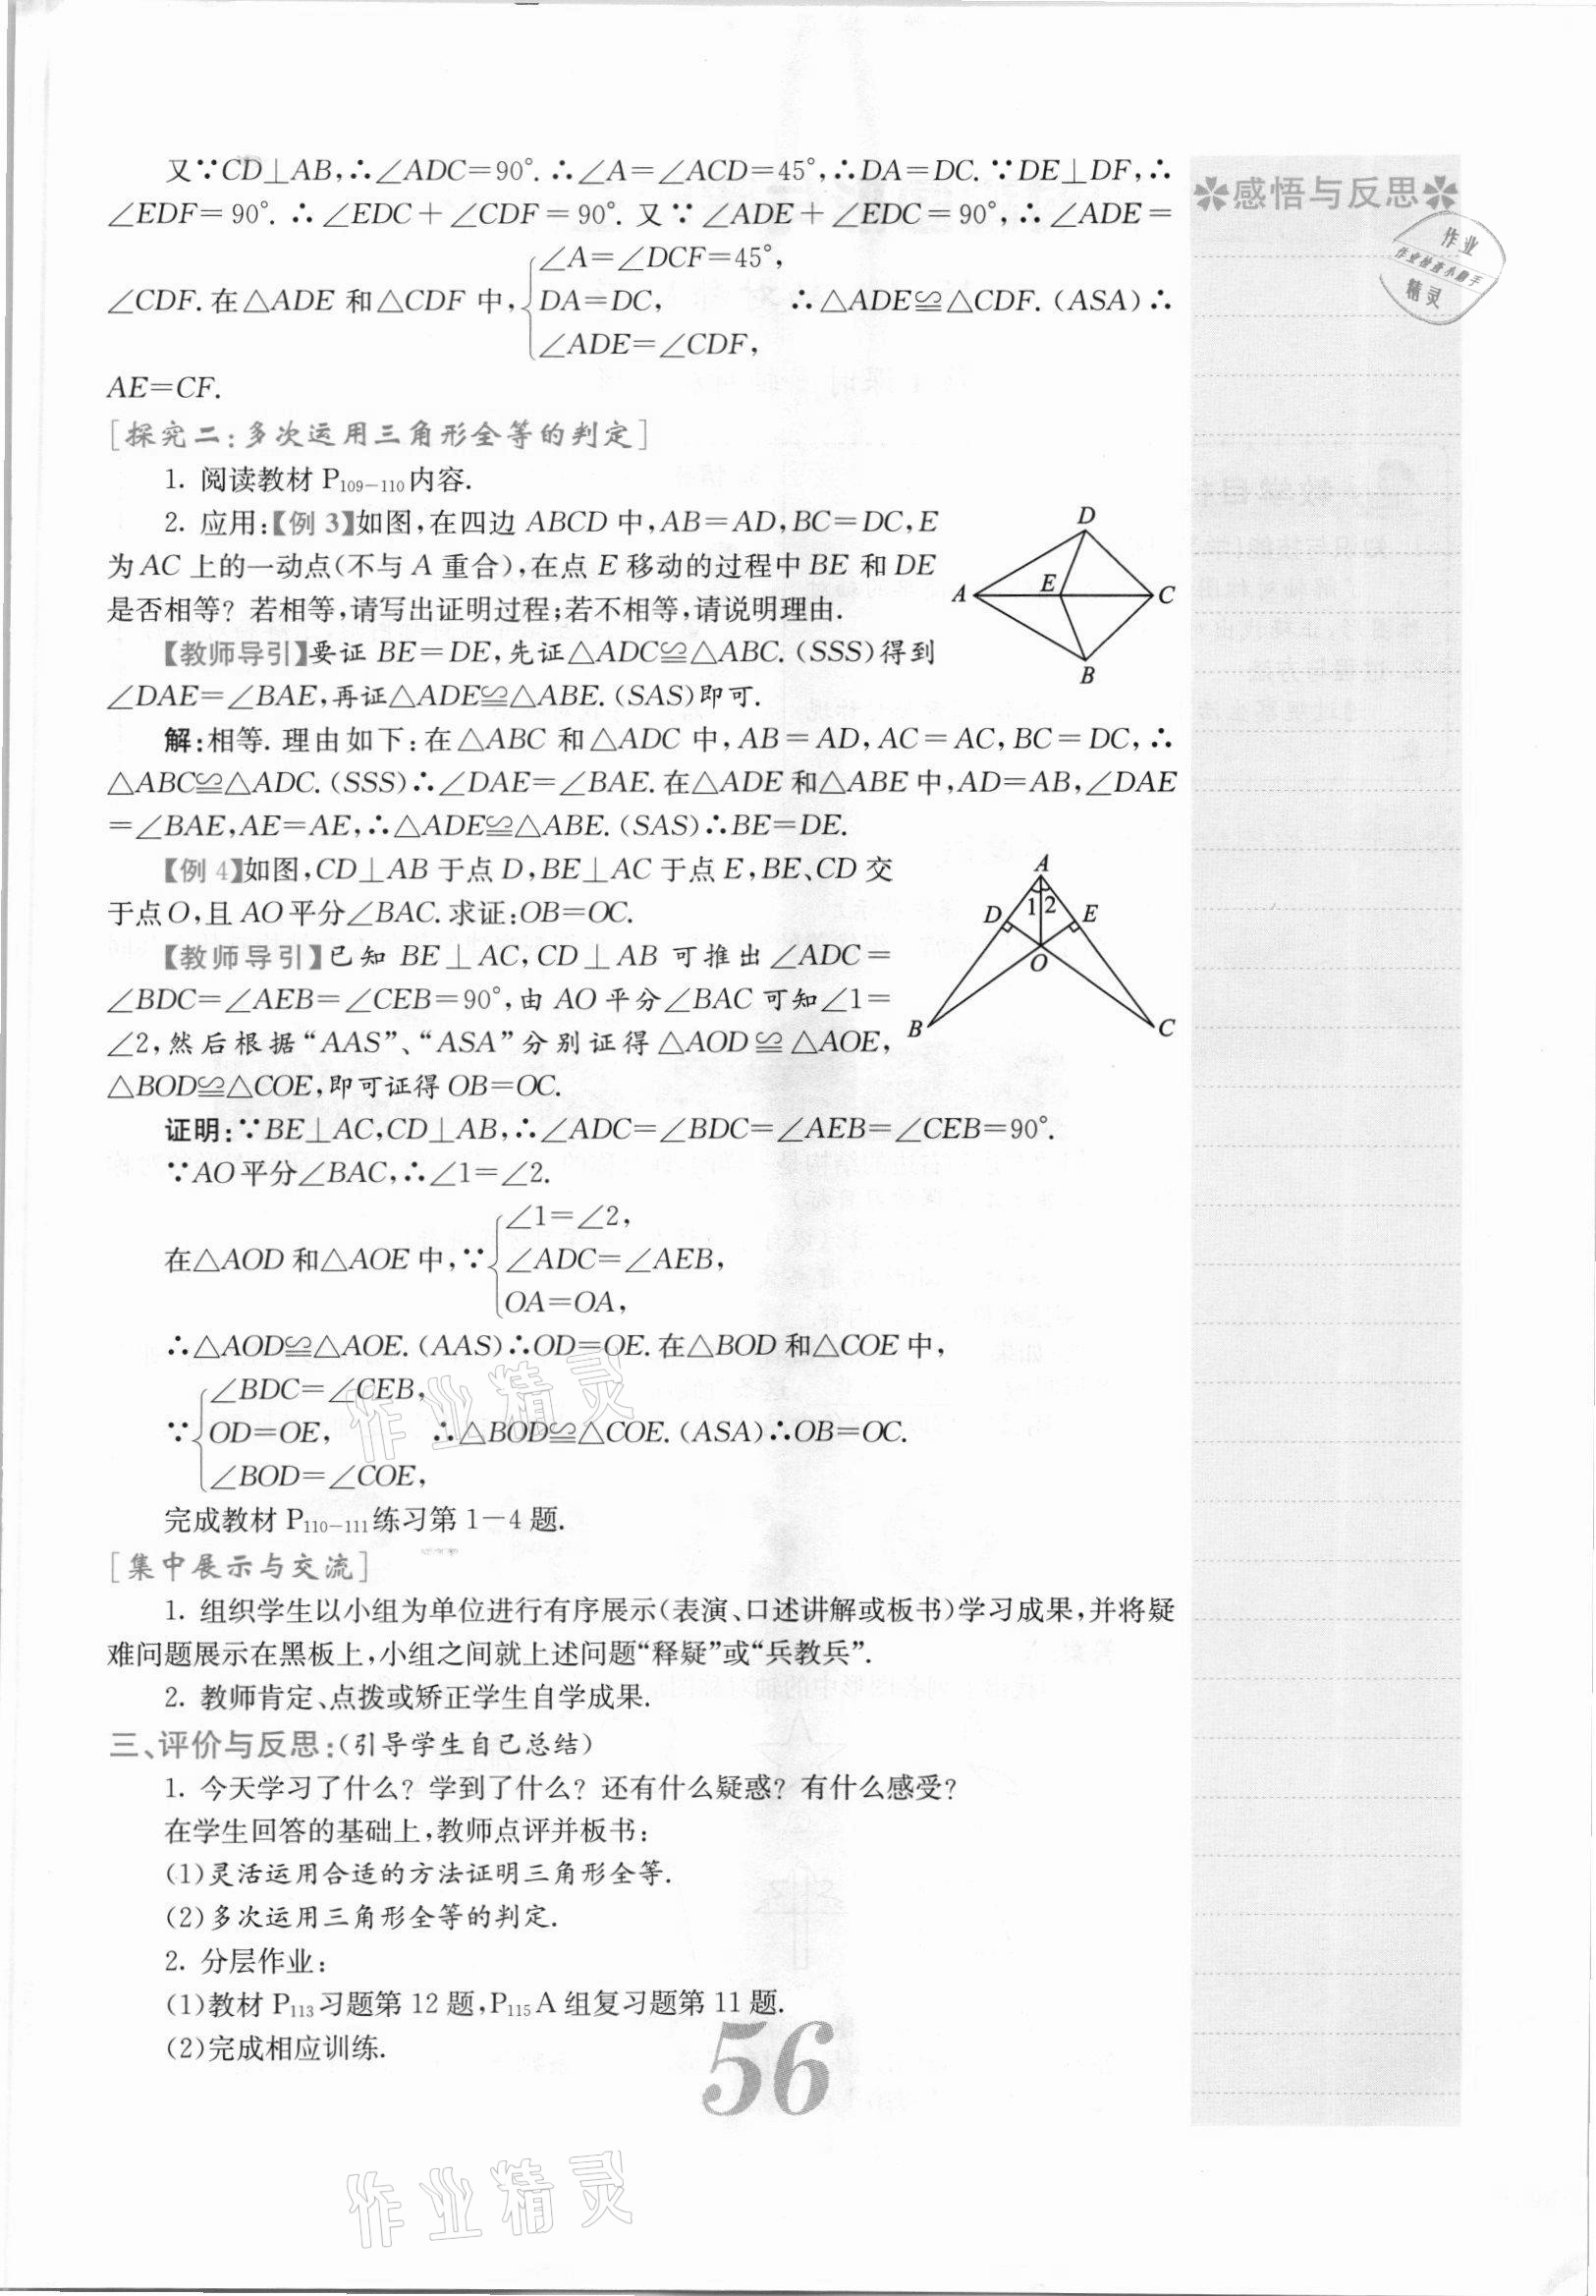 又∵CD⊥AB,∴∠ADC=90°.∴∠A=∠ACD=45°,∴DA=DC.∵DE⊥DF,∴
∠EDF=90°.∴∠EDC+∠CDF=90°.又∵∠ADE+∠EDC=90°,∴∠ADE=
∠A=∠DCF=45°,
∠CDF.在△ADE和△CDF中,{DA=DC, ∴△ADE≌△CDF.(ASA)∴
∠ADE=∠CDF,
AE=CF.
[探究二:多次运用三角形全等的判定]
1. 阅读教材P109-110内容.
2. 应用:【例3】如图,在四边ABCD中,AB=AD,BC=DC,E
为AC上的一动点(不与A重合),在点E移动的过程中BE和DE
是否相等?若相等,请写出证明过程;若不相等,请说明理由.
D
A
E
C
B
【教师导引】要证BE=DE,先证△ADC≌△ABC.(SSS)得到
∠DAE=∠BAE,再证△ADE≌△ABE.(SAS)即可.
解:相等.理由如下:在△ABC和△ADC中,AB=AD,AC=AC,BC=DC,∴
△ABC≌△ADC.(SSS)∴∠DAE=∠BAE.在△ADE和△ABE中,AD=AB,∠DAE
=∠BAE,AE=AE,∴△ADE≌△ABE.(SAS)∴BE=DE.
【例4】如图,CD⊥AB于点D,BE⊥AC于点E,BE、CD交
于点O,且AO平分∠BAC.求证:OB=OC.
A
D
1 2
E
O
B
C
【教师导引】已知BE⊥AC,CD⊥AB可推出∠ADC=
∠BDC=∠AEB=∠CEB=90°,由AO平分∠BAC可知∠1=
∠2,然后根据“AAS”、“ASA”分别证得△AOD≌△AOE,
△BOD≌△COE,即可证得OB=OC.
证明:∵BE⊥AC,CD⊥AB,∴∠ADC=∠BDC=∠AEB=∠CEB=90°.
∵AO平分∠BAC,∴∠1=∠2.
∠1=∠2,
在△AOD和△AOE中,∵{∠ADC=∠AEB,
OA=OA,
∴△AOD≌△AOE.(AAS)∴OD=OE.在△BOD和△COE中,
∠BDC=∠CEB,
∵{OD=OE, ∴△BOD≌△COE.(ASA)∴OB=OC.
∠BOD=∠COE,
完成教材P110-111练习第1-4题.
[集中展示与交流]
1. 组织学生以小组为单位进行有序展示(表演、口述讲解或板书)学习成果,并将疑
难问题展示在黑板上,小组之间就上述问题“释疑”或“兵教兵”.
2. 教师肯定、点拨或矫正学生自学成果.
三、评价与反思:(引导学生自己总结)
1. 今天学习了什么?学到了什么?还有什么疑惑?有什么感受?
在学生回答的基础上,教师点评并板书:
(1)灵活运用合适的方法证明三角形全等.
(2)多次运用三角形全等的判定.
2. 分层作业:
(1)教材P113习题第12题,P115A组复习题第11题.
(2)完成相应训练.
56
感悟与反思
作业
作业检查小助手
精灵
作业精灵
作业精灵